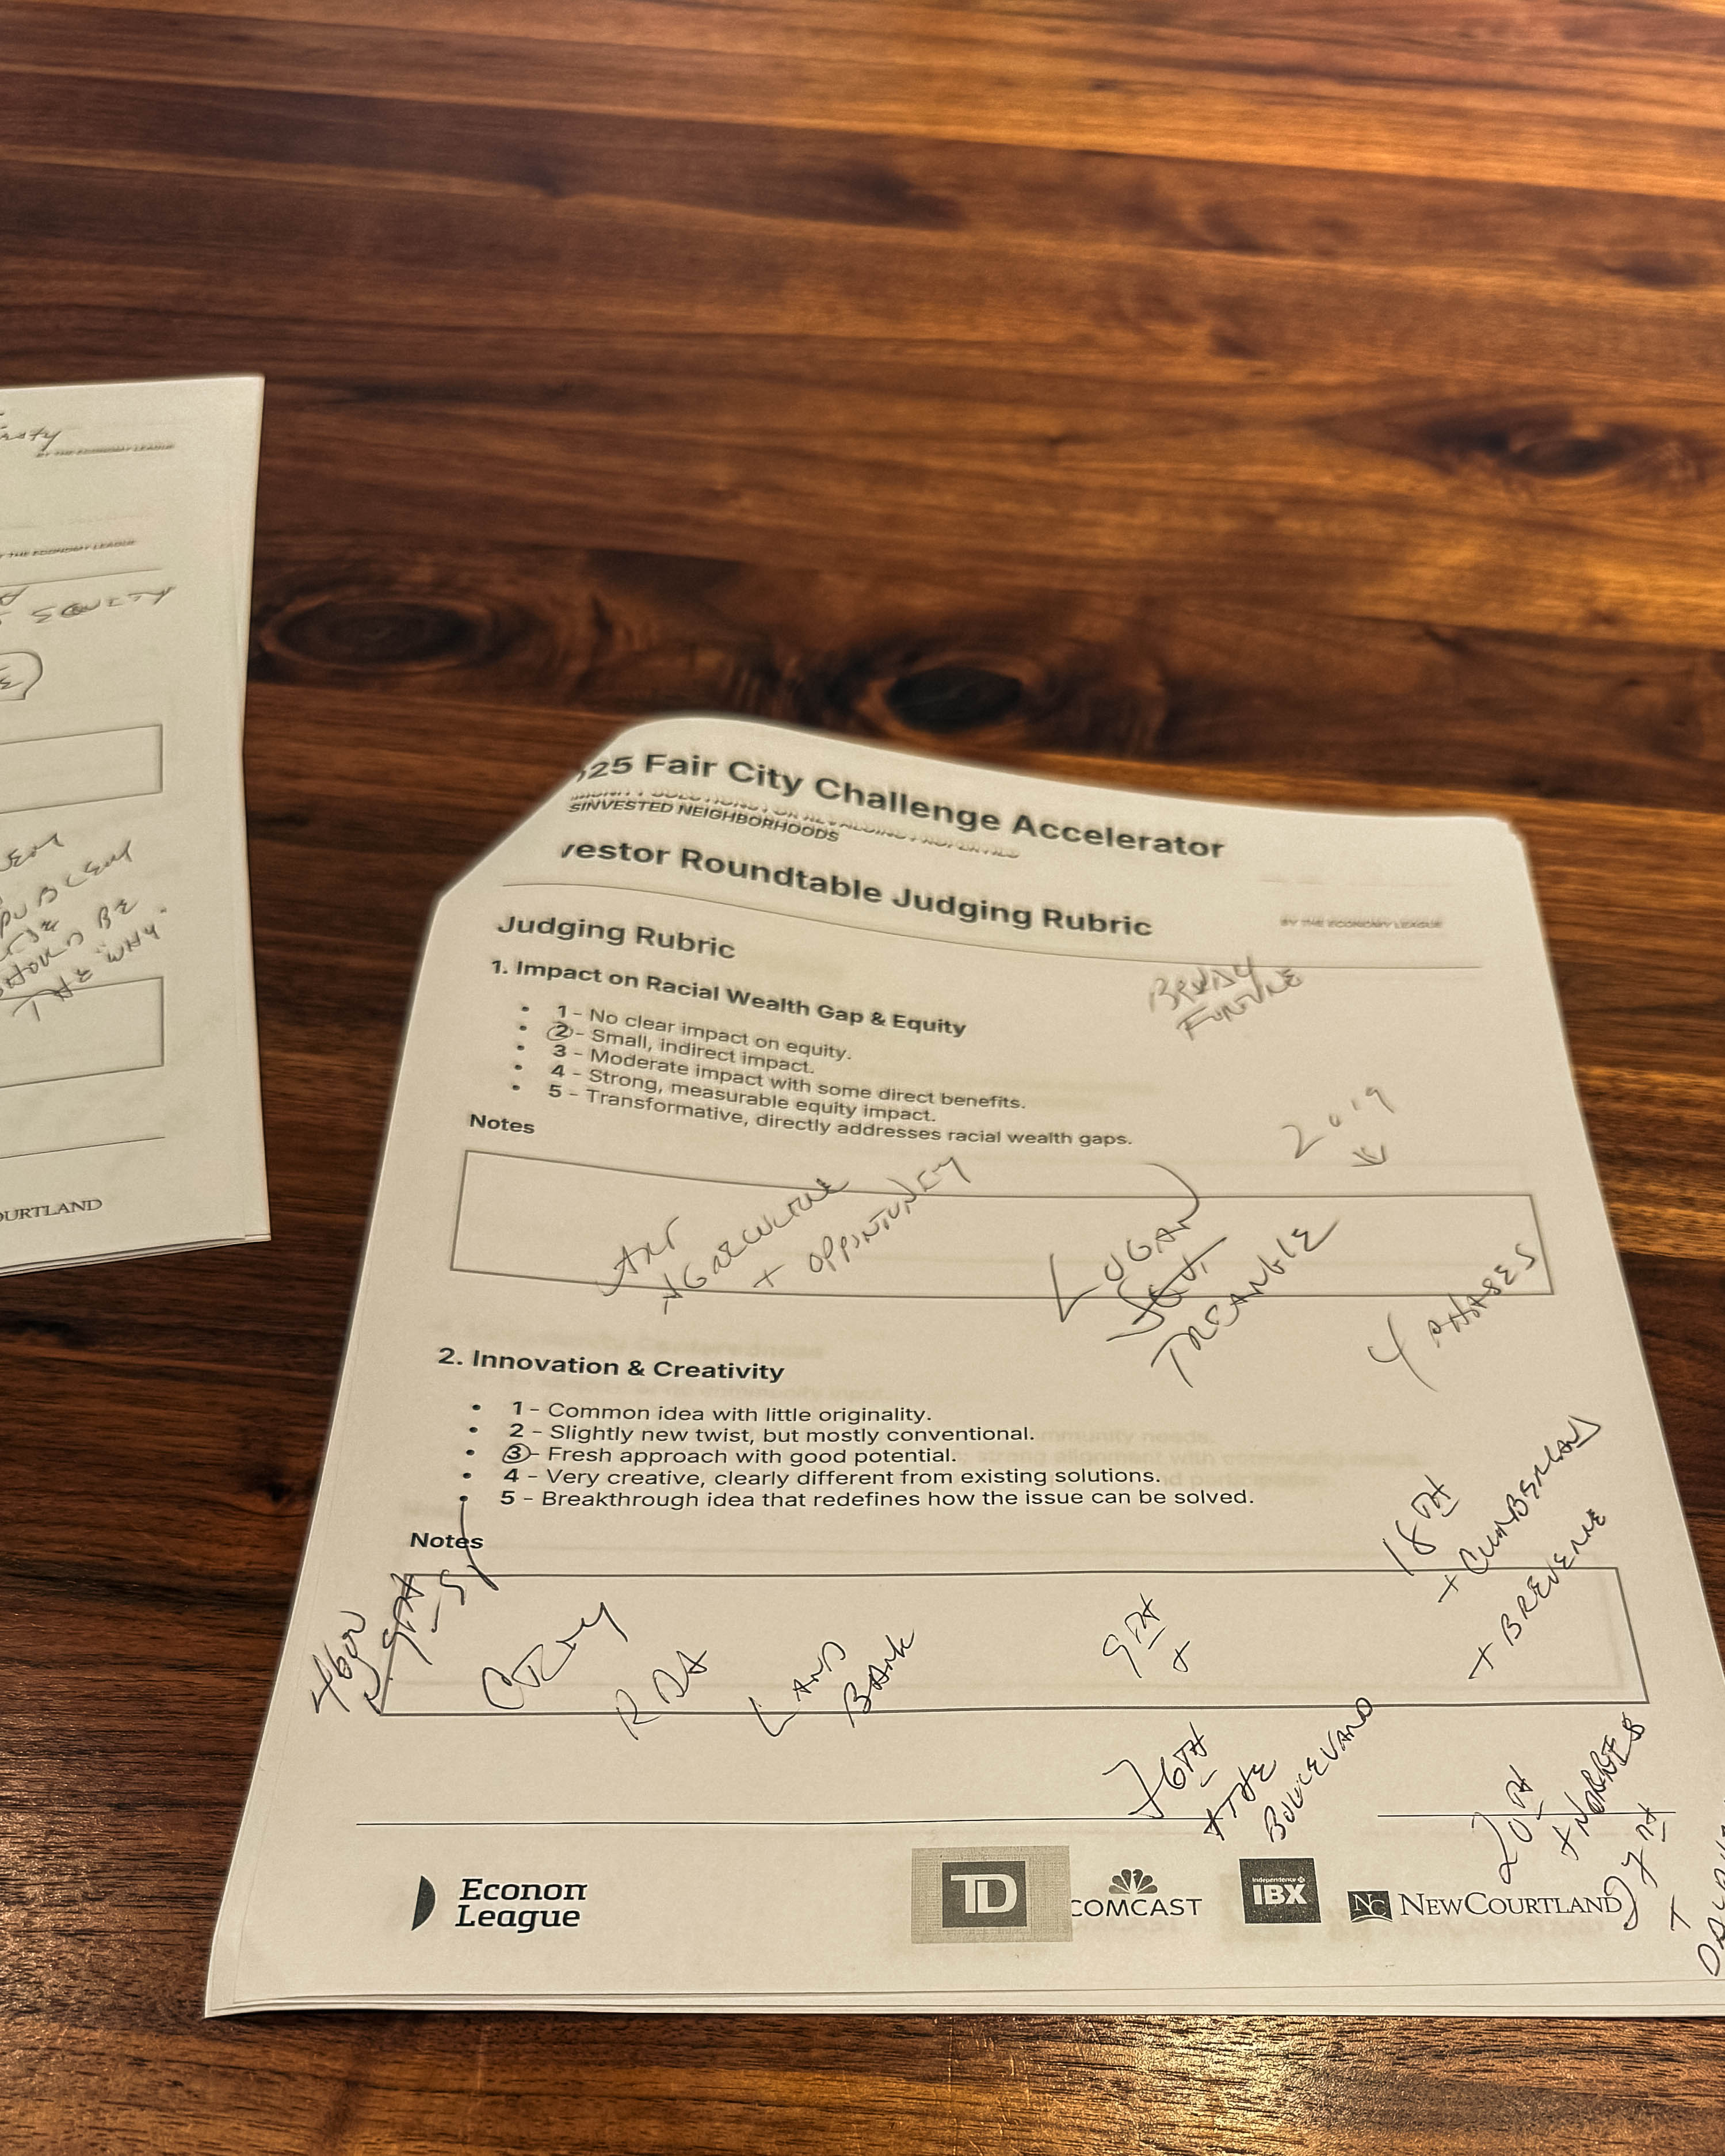 BY THE ECONOMY LEAGUE
THE ECONOMY LEAGUE
EQUITY
SHOULD BE
THE "WHY".
OURTLAND
25 Fair City Challenge Accelerator
SINVESTED NEIGHBORHOODS
vestor Roundtable Judging Rubric
BY THE ECONOMY LEAGUE
Judging Rubric
1. Impact on Racial Wealth Gap & Equity
• 1 – No clear impact on equity.
• 2 – Small, indirect impact.
• 3 – Moderate impact with some direct benefits.
• 4 – Strong, measurable equity impact.
• 5 – Transformative, directly addresses racial wealth gaps.
FUTURE
2019
Notes
ART
AGRICULTURE
+ OPPORTUNITY
LOGAN
TRIANGLE
4 PHASES
2. Innovation & Creativity
• 1 – Common idea with little originality.
• 2 – Slightly new twist, but mostly conventional.
• 3 – Fresh approach with good potential.
• 4 – Very creative, clearly different from existing solutions.
• 5 – Breakthrough idea that redefines how the issue can be solved.
Notes
4600
9TH
ST
CITY
RDA
LAND
BANK
9TH
+
18TH
+ CUMBERLAND
THE
BOULEVARD
20TH
+
27TH
+
Econom
League
TD
COMCAST
Independence
IBX
NC NEWCOURTLAND